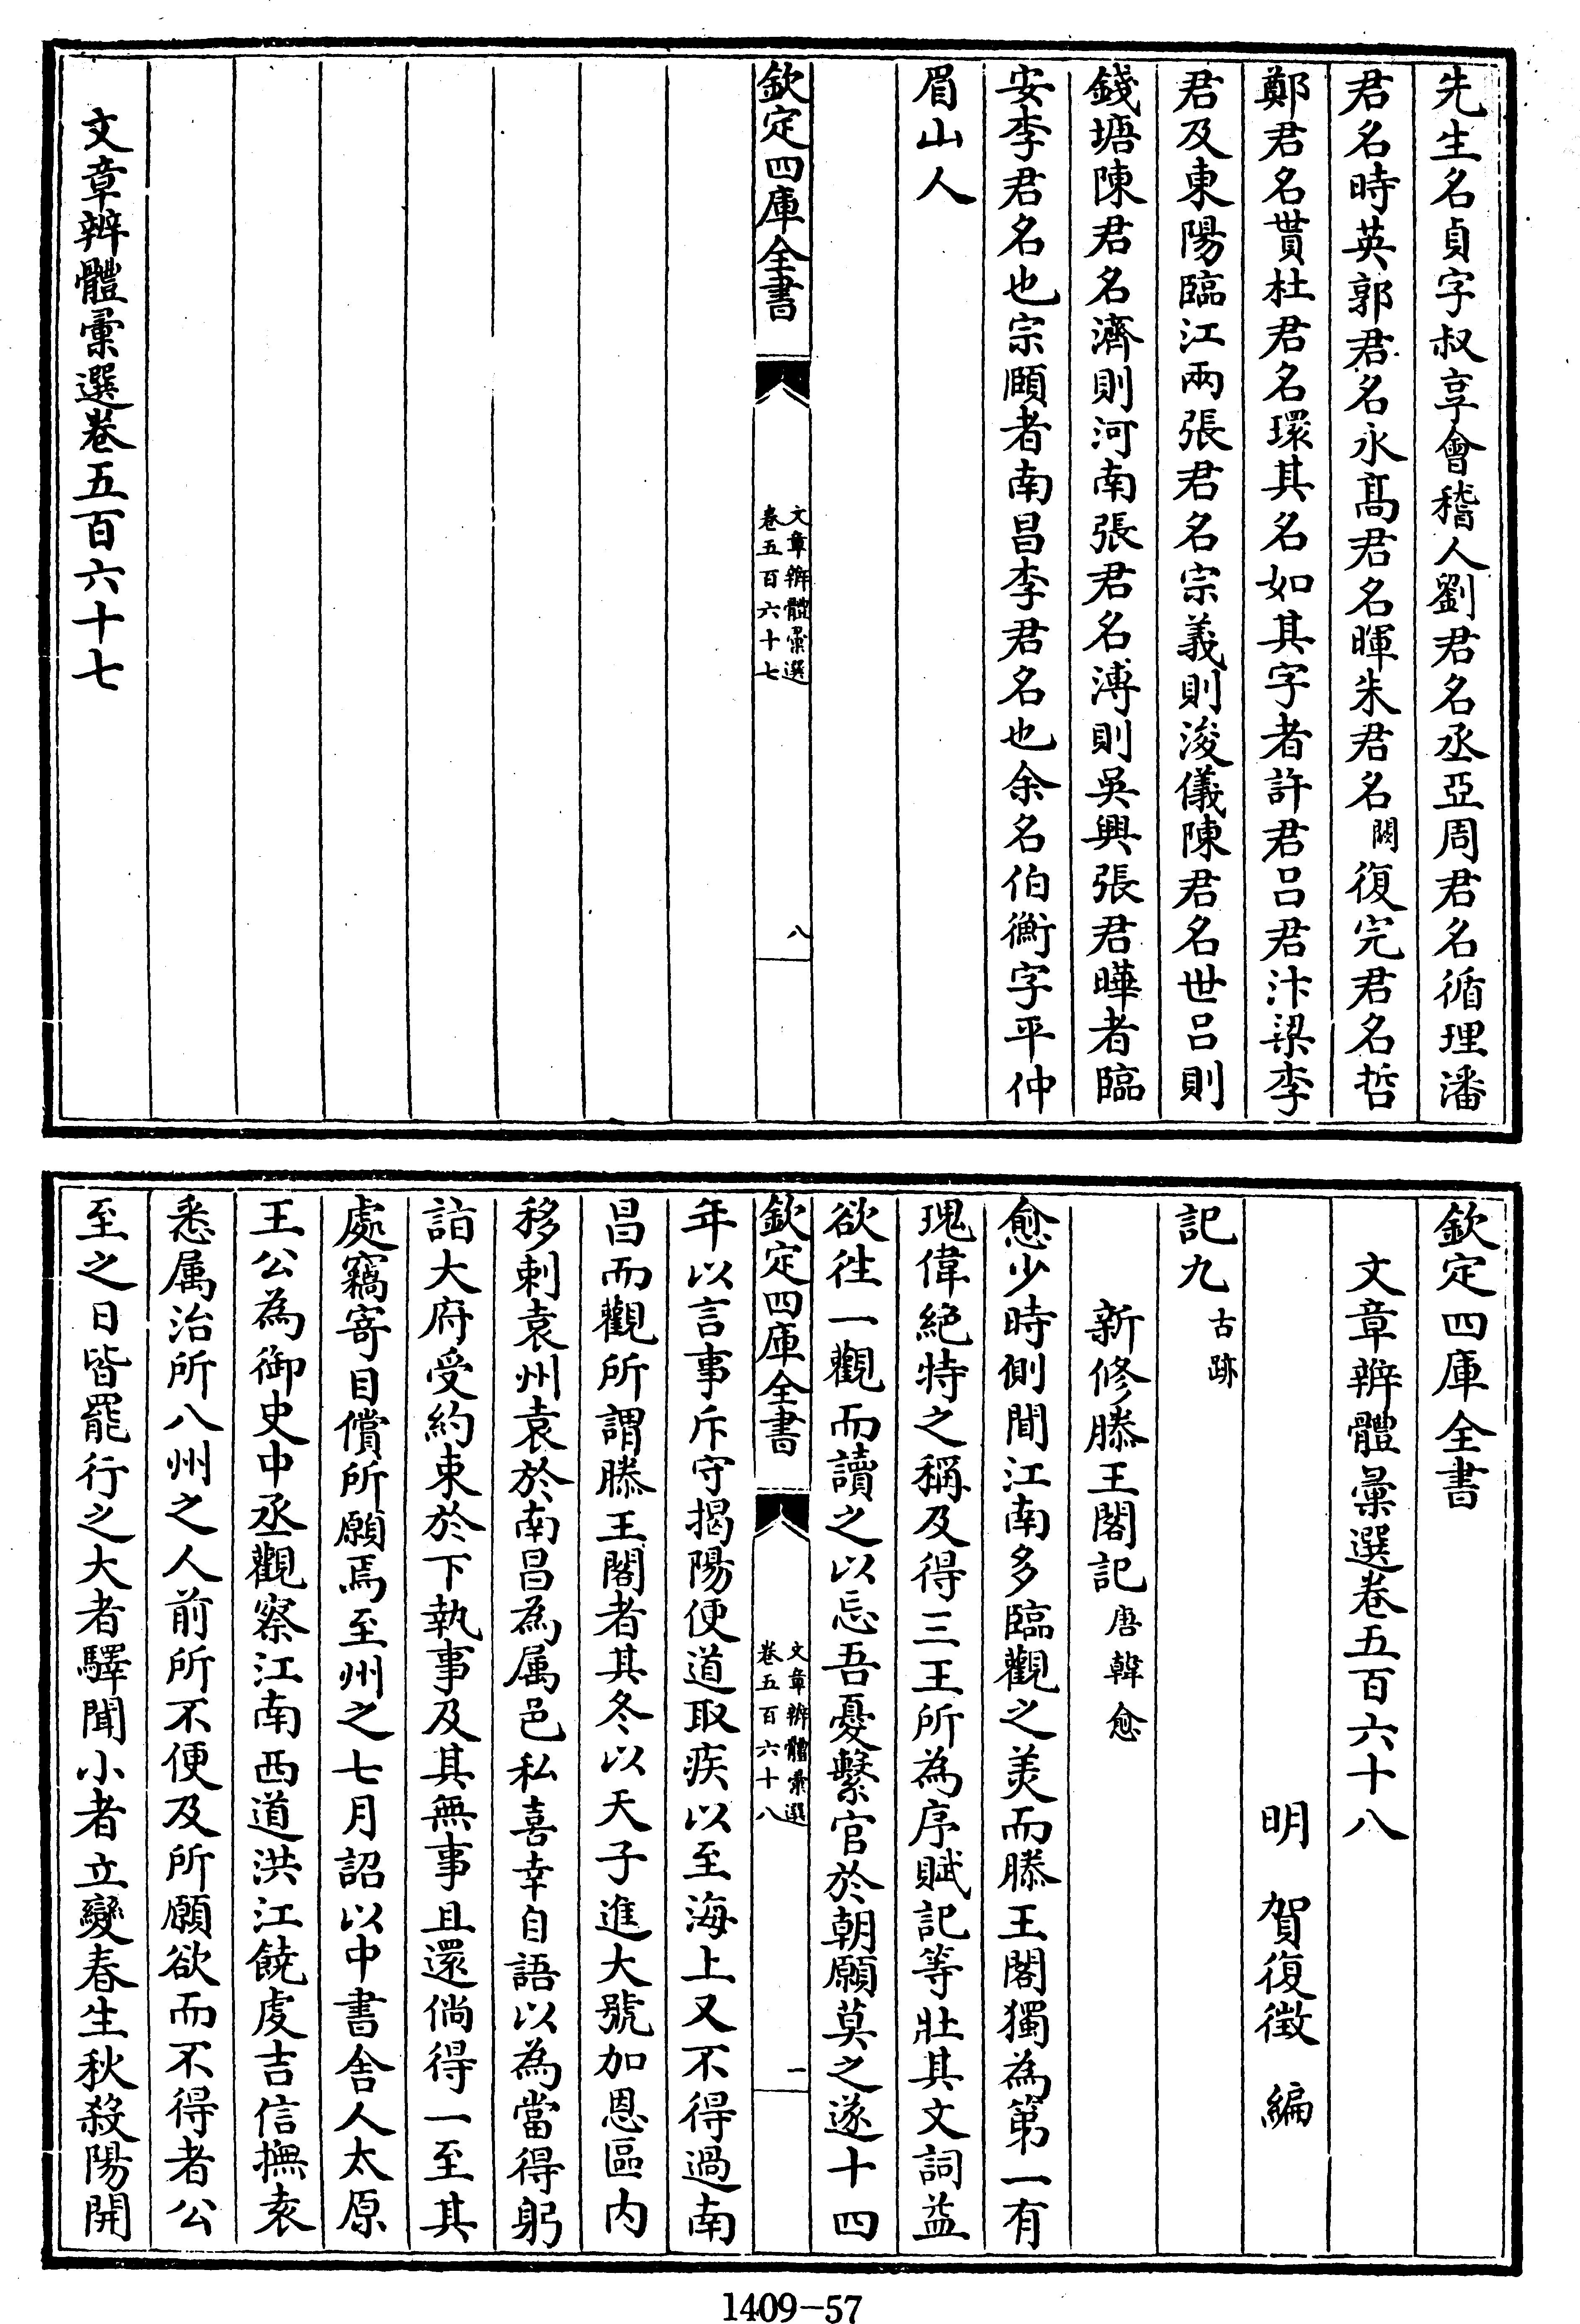 先生名貞字叔享會稽人劉君名丞亞周君名循理潘
君名時英郭君名永髙君名暉朱君名闕復完君名哲
鄭君名貫杜君名環其名如其字者許君吕君汴梁李
君及東陽臨江兩張君名宗義則浚儀陳君名世吕則
錢塘陳君名濟則河南張君名溥則吳興張君曄者臨
安李君名也宗頥者南昌李君名也余名伯衡字平仲
眉山人
欽定四庫全書
文章辨體彙選
卷五百六十七
八
文章辨體彙選卷五百六十七
欽定四庫全書
文章辨體彙選卷五百六十八
明 賀復徵 編
記九古跡
新修滕王閣記唐韓愈
愈少時側聞江南多臨觀之美而滕王閣獨為第一有
瑰偉絶特之稱及得三王所為序賦記等壯其文詞益
欲徃一觀而讀之以忘吾憂繫官於朝願莫之遂十四
欽定四庫全書
文章辨體彙選
卷五百六十八
一
年以言事斥守揭陽便道取疾以至海上又不得過南
昌而觀所謂滕王閣者其冬以天子進大號加恩區内
移刺袁州袁於南昌為属邑私喜幸自語以為當得躬
詣大府受約束於下執事及其無事且還倘得一至其
處竊寄目償所願焉至州之七月詔以中書舍人太原
王公為御史中丞觀察江南西道洪江饒䖍吉信撫袁
悉属治所八州之人前所不便及所願欲而不得者公
至之日皆罷行之大者驛聞小者立變春生秋殺陽開
1409-57